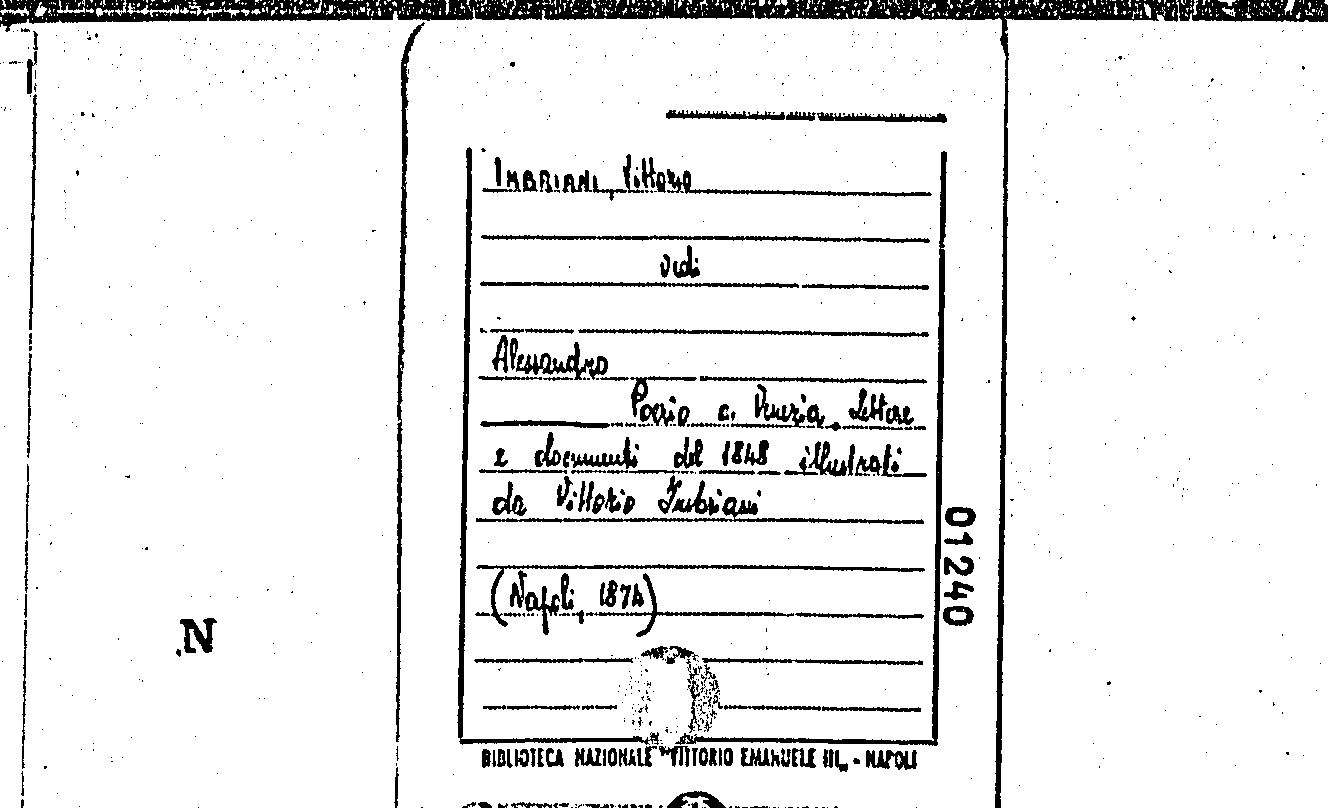 IMBRIANI, Vittorio
vedi
Alessandro
Poerio a Venezia. Lettere
e documenti del 1848 illustrati
da Vittorio Imbriani
(Napoli, 1874)
01240
N
BIBLIOTECA NAZIONALE "VITTORIO EMANUELE III" - NAPOLI